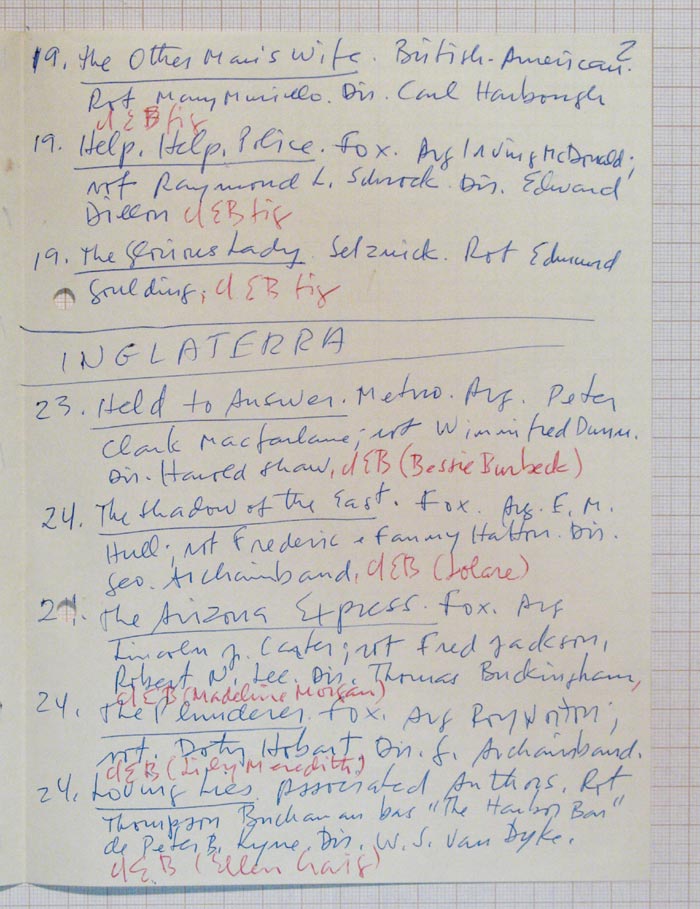 2
19. The Other Man's Wife. British-American.
Rot Mary Murillo. Dir. Carl Harbough
c/ EB fig
19. Help, Help, Police. Fox. Arg Irving McDonald;
rot Raymond L. Schrock. Dir. Edward
Dillon c/ EB fig
19. The Glorious Lady. Selznick. Rot Edmund
Goulding, c/ EB fig
INGLATERRA
23. Held to Answer. Metro. Arg. Peter
Clark Macfarlane; rot Winnifred Dunn.
Dir. Harold Shaw, c/ EB (Bessie Burbeck)
24. The Shadow of the East. Fox. Arg. E. M.
Hull; rot Frederic e Fanny Hatton. Dir.
Geo. Archainbaud, c/ EB (Lolare)
24. The Arizona Express. Fox. Arg
Lincoln J. Carter; rot Fred Jackson,
Robert N. Lee. Dir. Thomas Buckingham,
c/ EB (Madeline Morgan)
24. The Plunderer. Fox. Arg Roy Norton;
rot. Doty Hobart Dir. G. Archainbaud.
c/ EB (Lily Meredith)
24. Loving Lies. Associated Authors. Rot
Thompson Buchanan bas "The Harbor Bar"
de Peter B. Kyne. Dir. W. S. Van Dyke.
c/ EB (Ellen Craig)